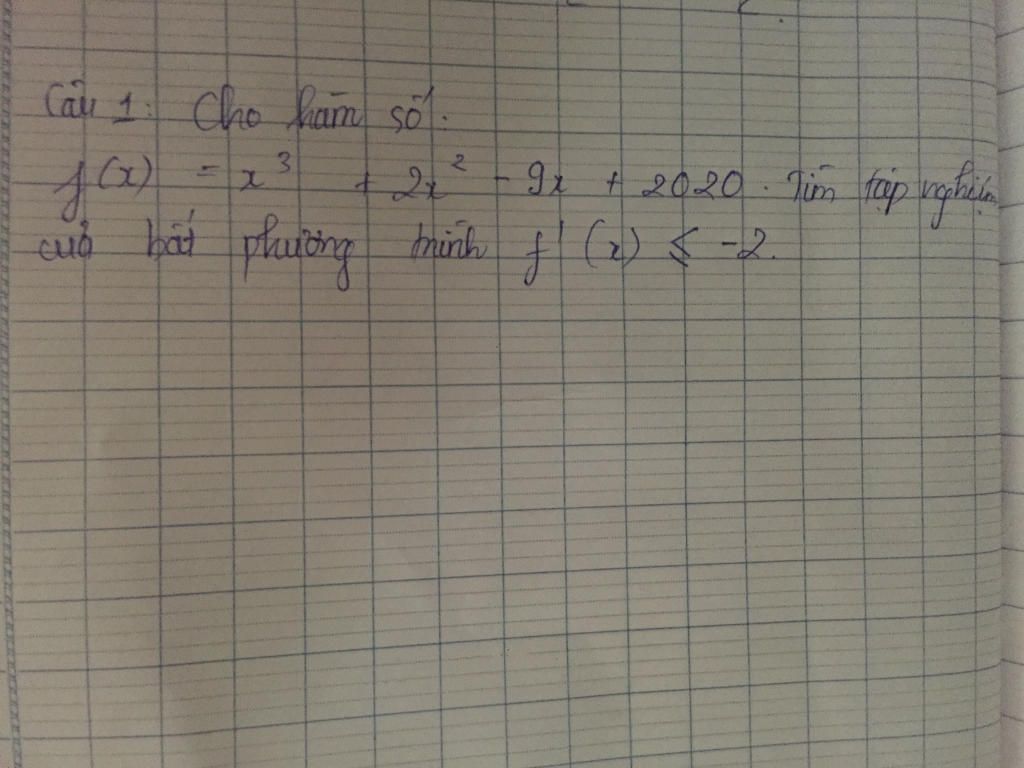 Câu 1: Cho hàm số.
f(x) = x³ + 2x² - 9x + 2020. Tìm tập nghiệm
của bất phương trình f'(x) ≤ -2.